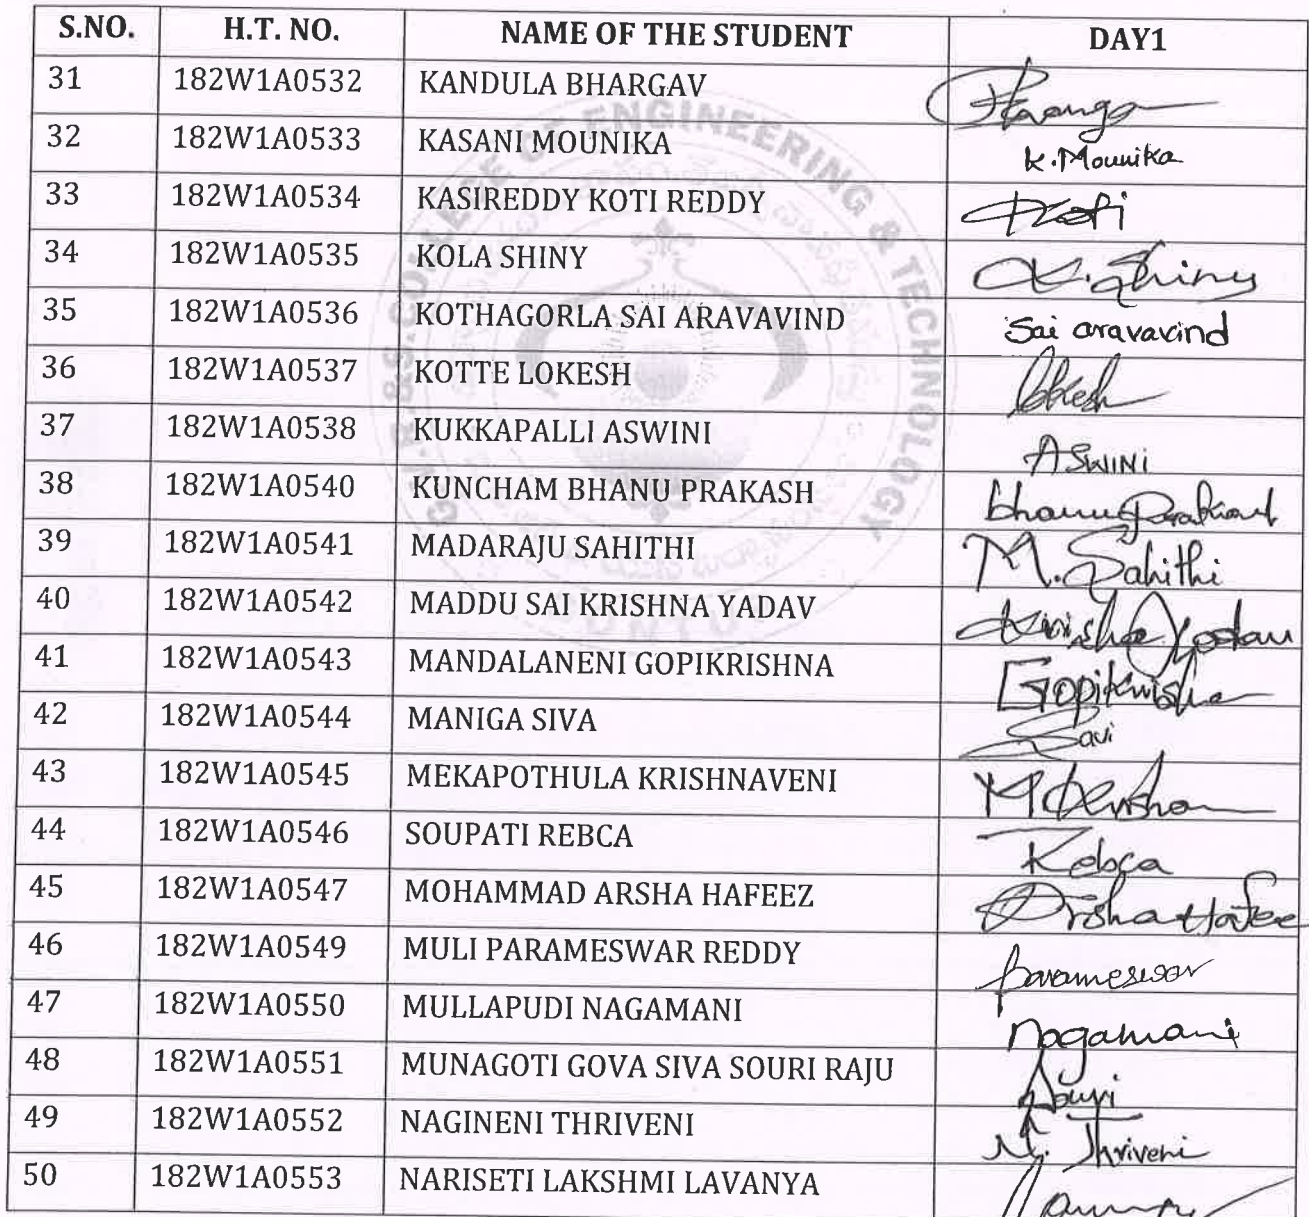 S.NO. H.T. NO. NAME OF THE STUDENT DAY1
31 182W1A0532 KANDULA BHARGAV
32 182W1A0533 KASANI MOUNIKA K.Mounika
33 182W1A0534 KASIREDDY KOTI REDDY Koti
34 182W1A0535 KOLA SHINY K.Shiny
35 182W1A0536 KOTHAGORLA SAI ARAVAVIND Sai aravavind
36 182W1A0537 KOTTE LOKESH lokesh
37 182W1A0538 KUKKAPALLI ASWINI ASWINI
38 182W1A0540 KUNCHAM BHANU PRAKASH bhanu
39 182W1A0541 MADARAJU SAHITHI M.Sahithi
40 182W1A0542 MADDU SAI KRISHNA YADAV Krishna Yadav
41 182W1A0543 MANDALANENI GOPIKRISHNA Gopikrishna
42 182W1A0544 MANIGA SIVA
43 182W1A0545 MEKAPOTHULA KRISHNAVENI
44 182W1A0546 SOUPATI REBCA Rebca
45 182W1A0547 MOHAMMAD ARSHA HAFEEZ Arsha Hafee
46 182W1A0549 MULI PARAMESWAR REDDY parameswar
47 182W1A0550 MULLAPUDI NAGAMANI Nagamani
48 182W1A0551 MUNAGOTI GOVA SIVA SOURI RAJU Souri
49 182W1A0552 NAGINENI THRIVENI N. Thriveni
50 182W1A0553 NARISETI LAKSHMI LAVANYA
G.V.R.&S.COLLEGE OF ENGINEERING & TECHNOLOGY
GUNTUR